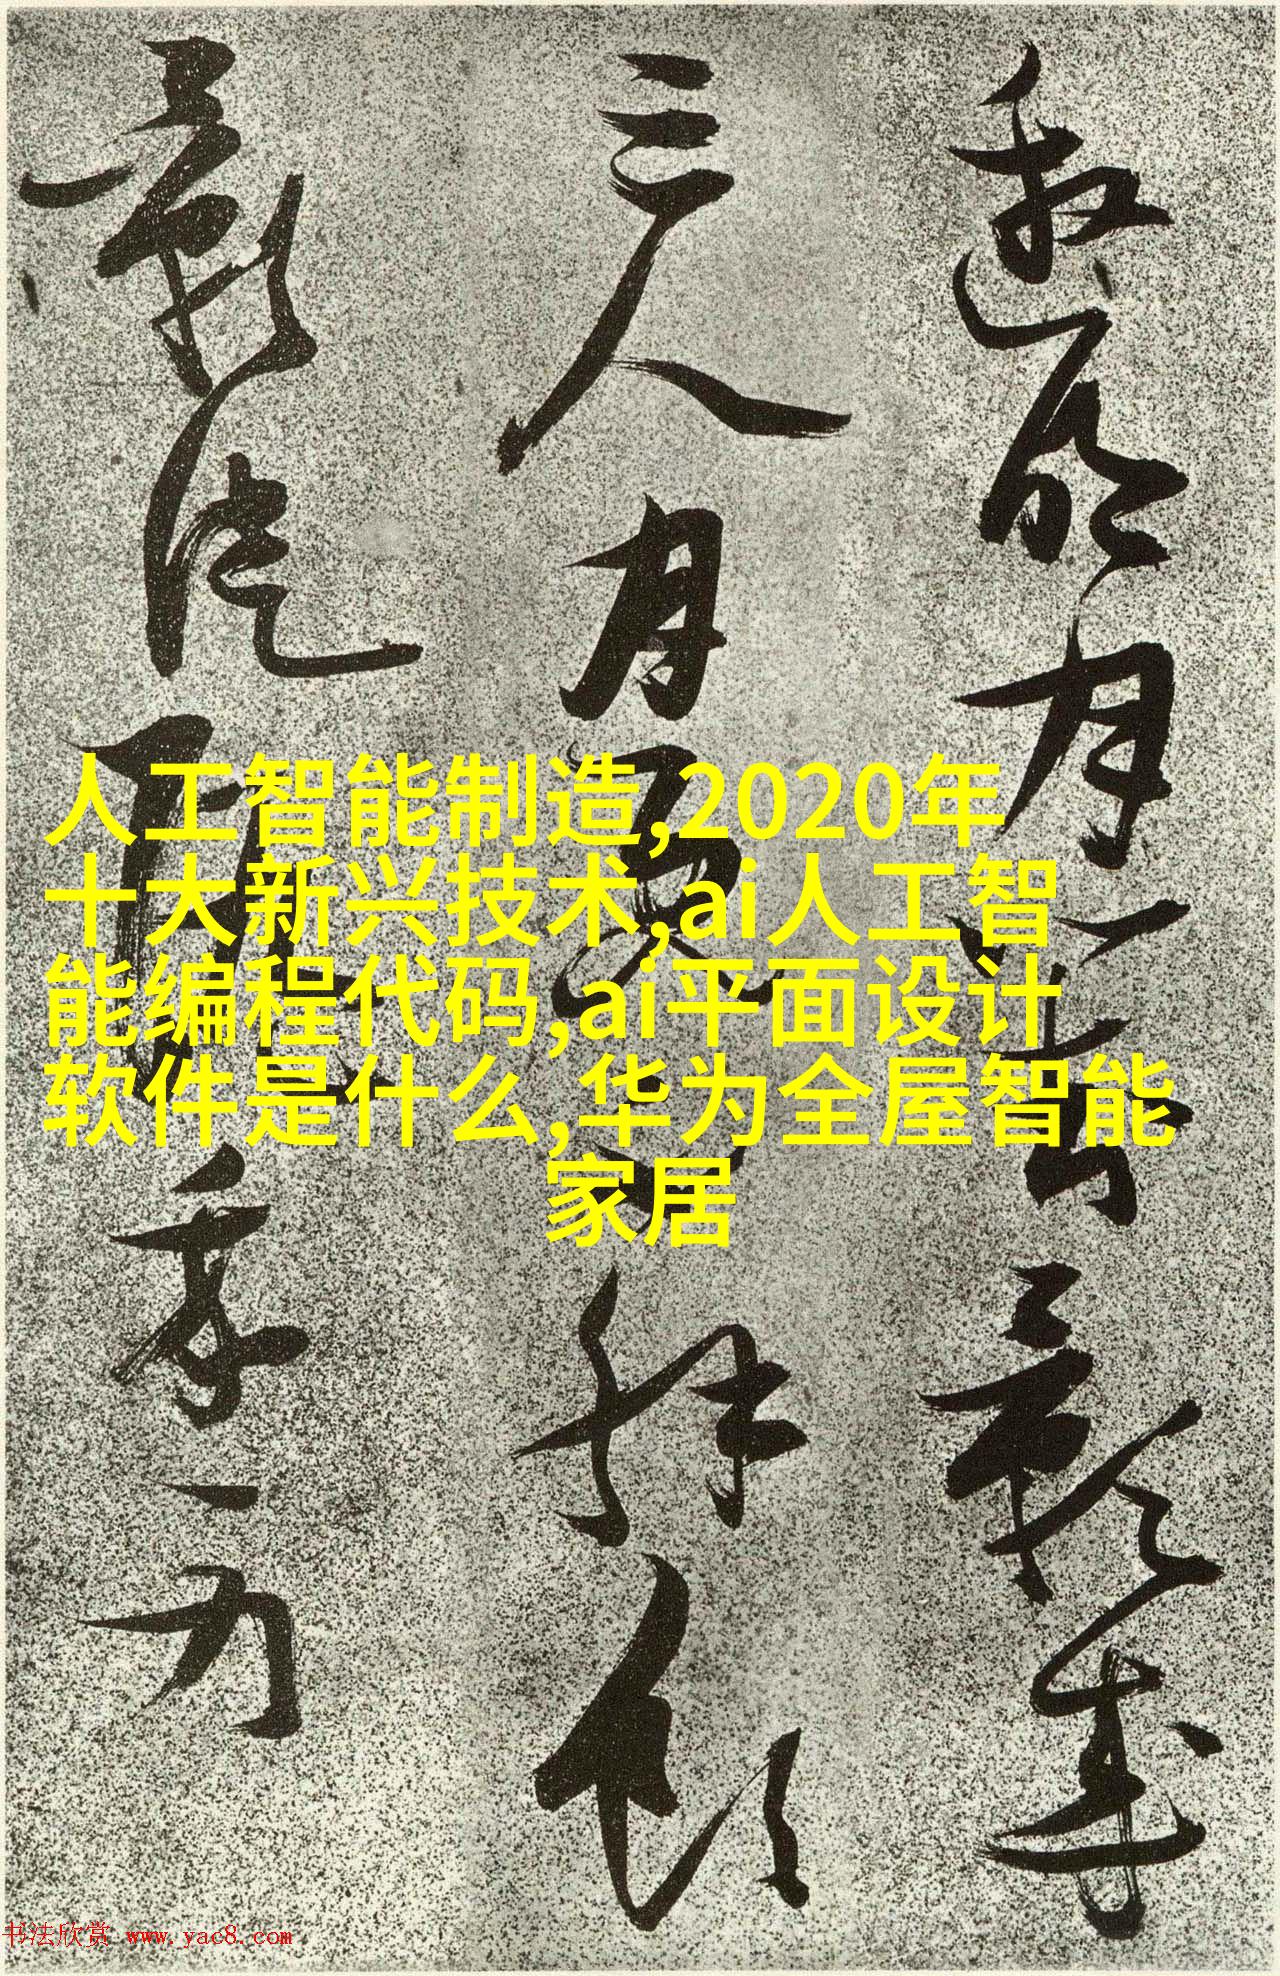 人工智能制造,2020年
十大新兴技术,ai人工智
能编程代码,ai平面设计
软件是什么,华为全屋智能
家居
邀明月對影成
三人月既不解飲
影徒
书法欣赏 www.yac8.com